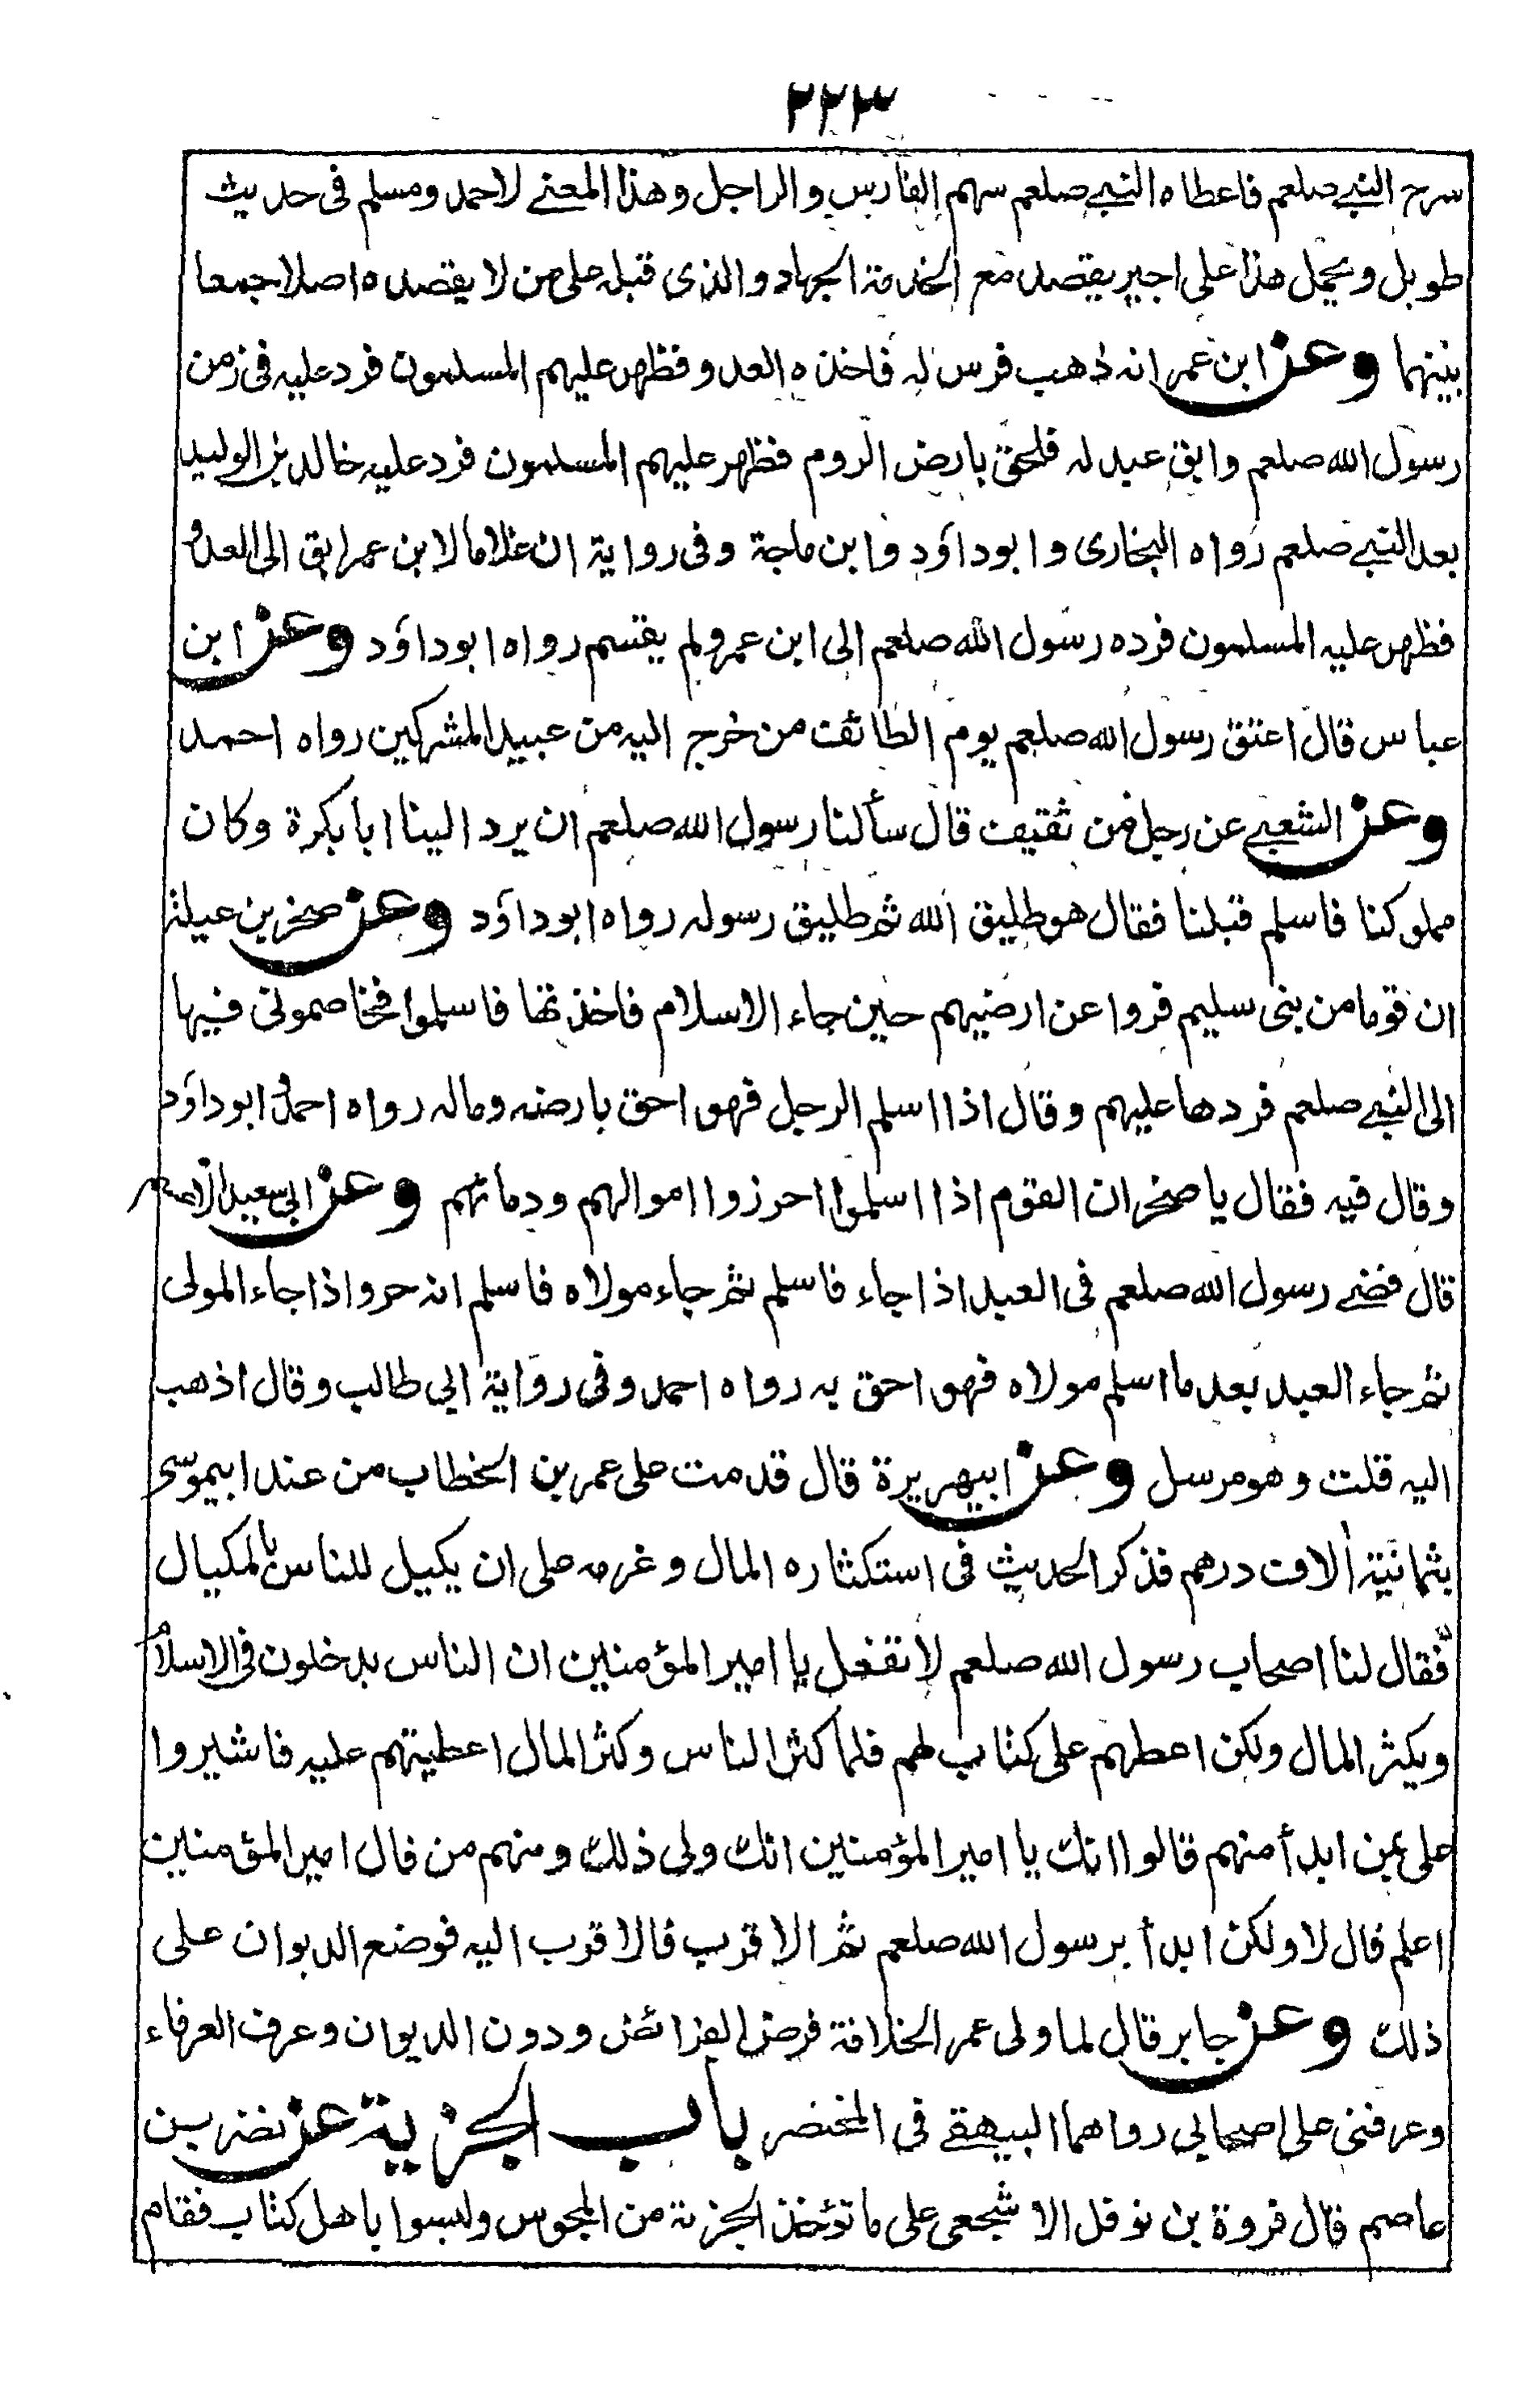 ٢٢٣
سرح النبي صلعم فاعطاه النبي صلعم سهم الفارس والراجل وهذا المعنے لاحمد ومسلم فی حدیث
طویل ویحمل هذا علی اجیر یقصد مع الخدمة الجهاد والذی قبله علی من لا یقصده اصلا جمعا
بینهما وعن ابن عمر انه ذهب فرس له فاخذه العدو فظهر علیهم المسلمون فرد علیه فی زمن
رسول الله صلعم وابق عبد له فلحق بارض الروم فظهر علیهم المسلمون فرد علیه خالد بن الولید
بعد النبي صلعم رواه البخاری وابوداود وابن ماجة وفی روایة ان غلاما لابن عمر ابق الی العدو
فظهر علیه المسلمون فرده رسول الله صلعم الی ابن عمر ولم یقسم رواه ابوداود وعن ابن
عباس قال اعتق رسول الله صلعم یوم الطائف من خرج الیه من عبید المشرکین رواه احمد
وعن الشعبے عن رجل من ثقیف قال سألنا رسول الله صلعم ان یرد الینا ابا بکرة وکان
مملوکنا فاسلم قبلنا فقال هو طلیق الله ثم طلیق رسوله رواه ابوداود وعن صخر بن عیلة
ان قوما من بنی سلیم فروا عن ارضهم حین جاء الاسلام فاخذتها فاسلموا فخاصمونی فیها
الی النبے صلعم فردها علیهم وقال اذا اسلم الرجل فهو احق بارضه وماله رواه احمد وابوداود
وقال فیه فقال یا صخر ان القوم اذا اسلموا احرزوا اموالهم ودمائهم وعن ابی سعید الاعسم
قال قضے رسول الله صلعم فی العبد اذا جاء فاسلم ثم جاء مولاه فاسلم انه حر واذا جاء المولی
ثم جاء العبد بعد ما اسلم مولاه فهو احق به رواه احمد وفی روایة ابی طالب وقال اذهب
الیه قلت وهو مرسل وعن ابیهریرة قال قدمت علی عمر بن الخطاب من عند ابیموسی
بثمانیة الاف درهم فذکر الحدیث فی استکثاره المال وعزمه علی ان یکیل للناس بالمکیال
فقال لنا اصحاب رسول الله صلعم لا تفعل یا امیر المؤمنین ان الناس یدخلون فی الاسلام
ویکثر المال ولکن اعطهم علی کتاب لهم فلما کثر الناس وکثر المال اعطیتهم علیه فاشیروا
علی بمن ابدأ منهم قالوا انک یا امیر المؤمنین انک ولی ذلک ومنهم من قال امیر المؤمنین
اعلم قال لا ولکن ابدأ برسول الله صلعم ثم الاقرب فالاقرب الیه فوضع الدیوان علی
ذلک وعن جابر قال لما ولی عمر الخلافة فرض الفرائض ودون الدیوان وعرف العرفاء
وعرفنی علی اصحابی رواهما البیهقے فی المختصر باب الجزیة عن نضر بن
عاصم قال فروة بن نوفل الاشجعی علی ما تؤخذ الجزیة من المجوس ولیسوا باهل کتاب فقام